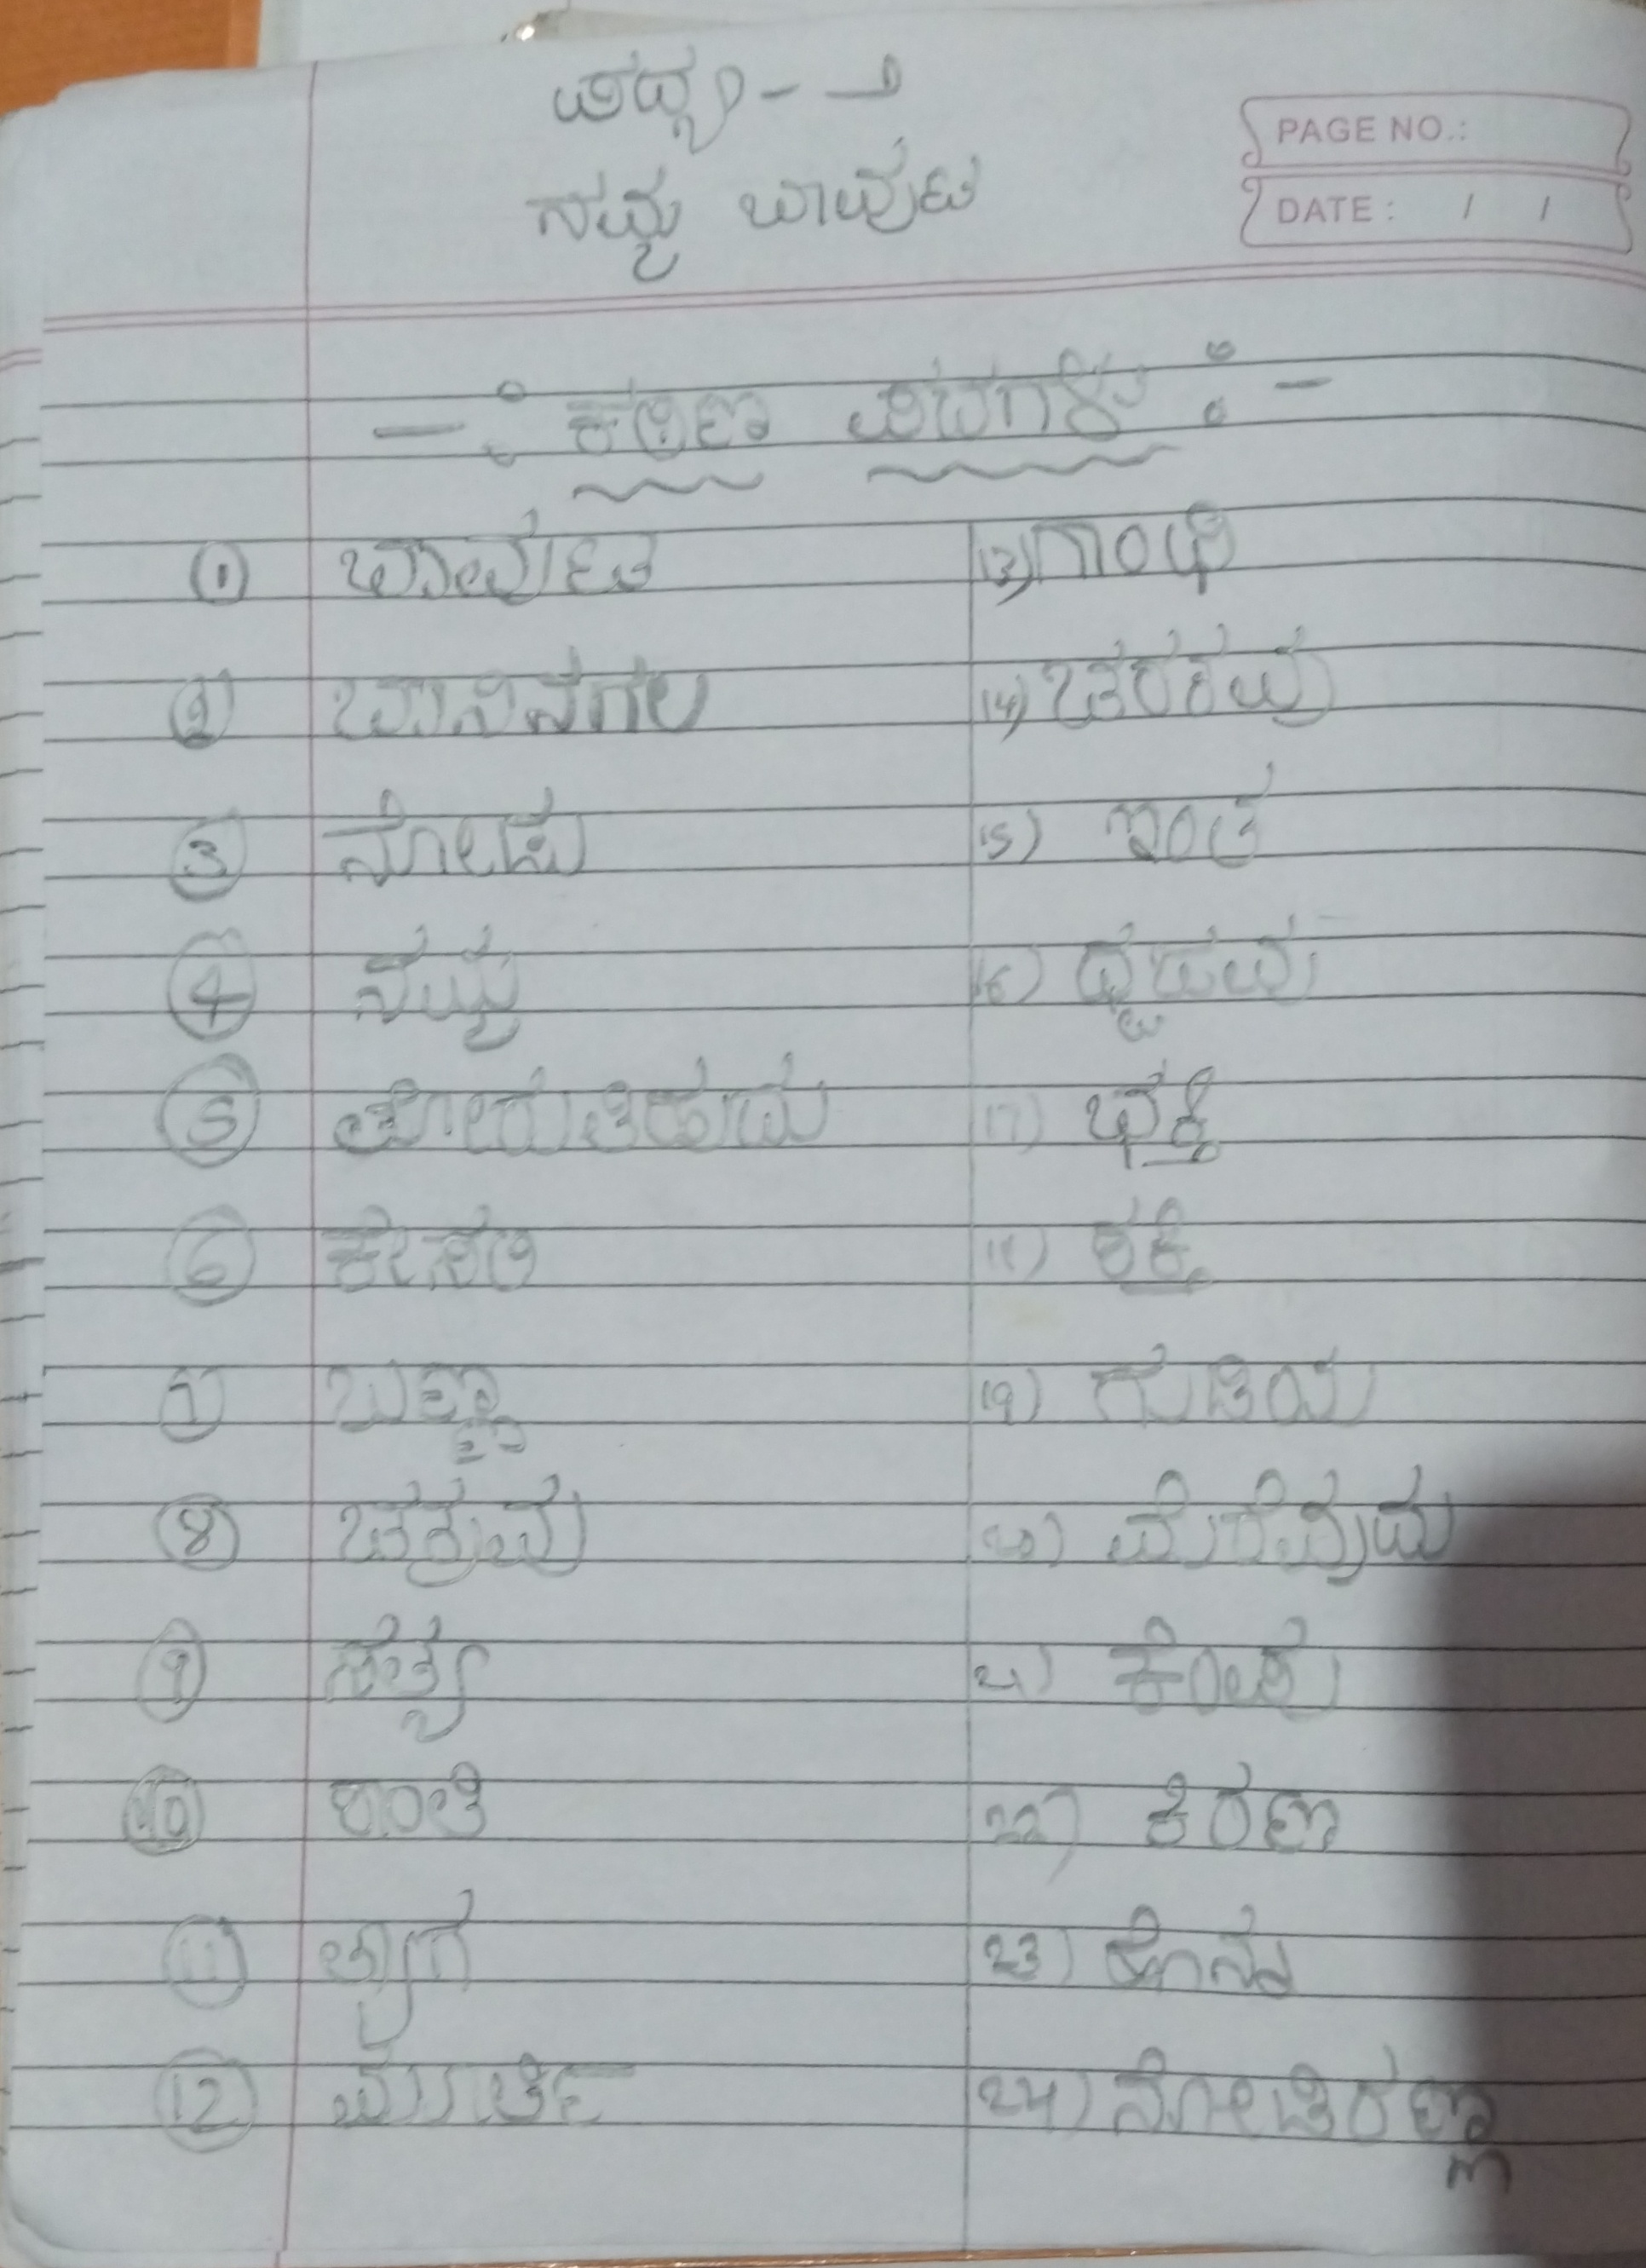 ಪದ್ಯ - ೨
ನಮ್ಮ ಬಾವುಟ
PAGE NO.:
DATE: / /
-: ಕಠಿಣ ಪದಗಳು :-
1 ಬಾವುಟ
2 ಬಾನಿನಗಲ
3 ನೋಡು
4 ನಮ್ಮ
5 ತೋರುತಿಹುದು
6 ಕೇಸರಿ
7 ಬಣ್ಣ
8 ಚಕ್ರವು
9 ಸತ್ಯ
10 ಶಾಂತಿ
11 ತ್ಯಾಗ
12 ಮೂರ್ತಿ
13) ಗಾಂಧಿ
14) ಚರಕವು
15) ಇಂತ
16) ಧ್ವಜವು
17) ಭಕ್ತಿ
18) ಶಕ್ತಿ
19) ಗುಡಿಯ
20) ಮೆರೆವುದು
21) ಕೆಂಪು
22) ಕಿರಣ
23) ಹೊನ್ನ
24) ನೋಡಿರಣ್ಣ